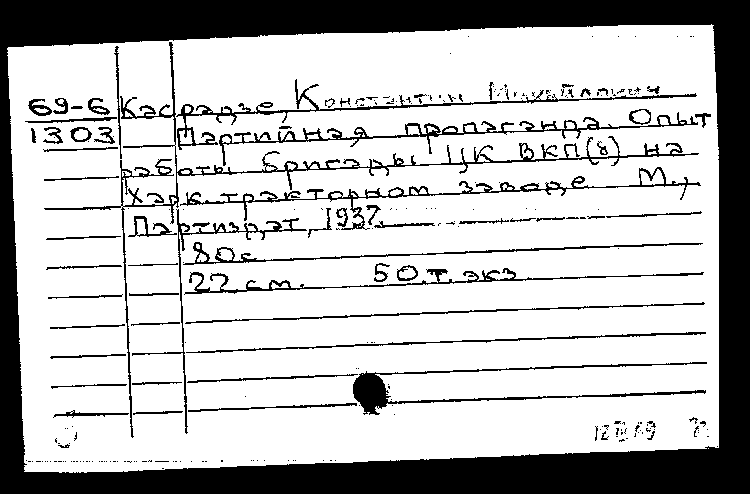 69-6 Касрадзе, Константин Михайлович
1303 Партийная пропаганда. Опыт
работы бригады ЦК ВКП(б) на
Харк. тракторном заводе М.,
Партиздат, 1937.
80с
22 см. 50.т. экз
12 III 69